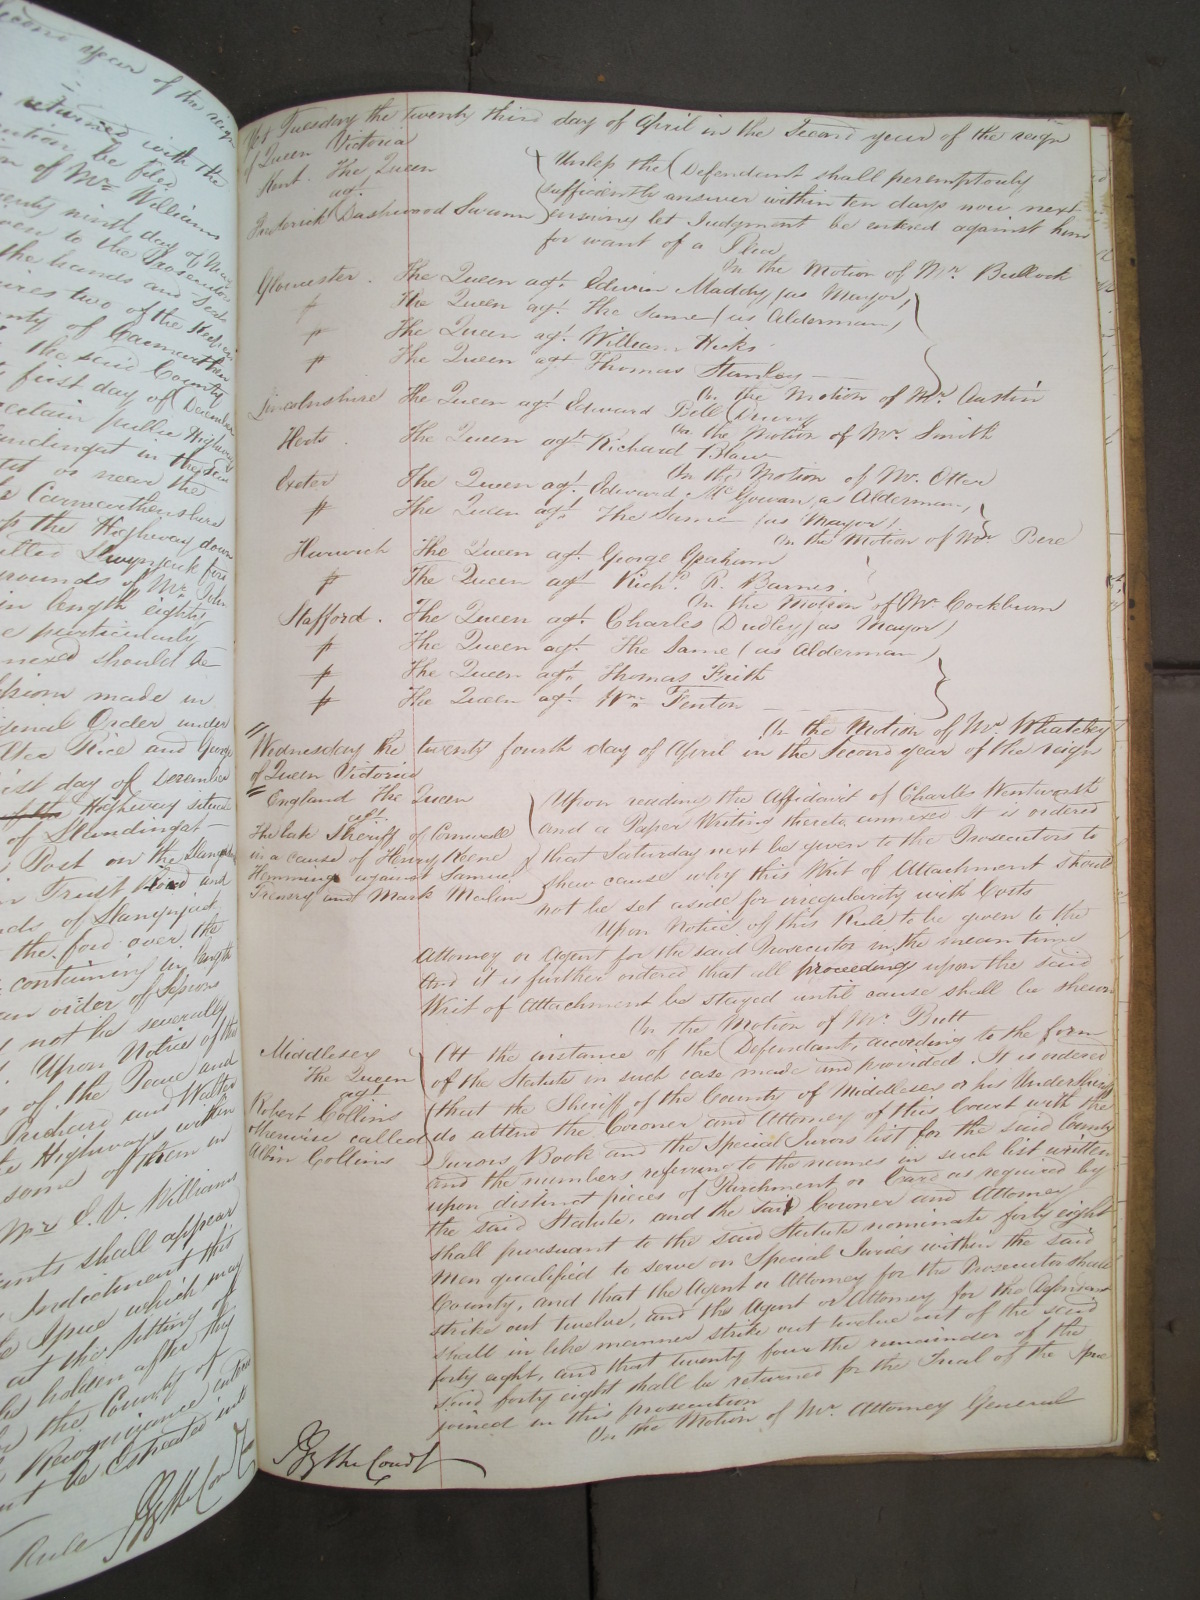 second year of the reign
returned with the
be filed
of Mr. Williams
ninth day of
to the Prosecutors
the hands and
two of the
of Carmarthen
the said County
first day of December
certain public Highway
in the said
or near the
Carmarthenshire
the Highway down
grounds of Mr. John
in length eighty
particularly
should be
made in
Order under
Rice and George
day of December
Highway situate
of Llandingat
Post on the
Trust Road and
of
the ford over the
containing in length
an order of Sessions
not be severally
Upon Notice of this
of the Peace and
Prichard and Walter
Highways within
some of them in
Mr. E. V. Williams
shall appear
Indictment that
Issue which may
at the Sitting of
holden after they
the County of
Recognizance
be Estreated
Rule By the Court
Tuesday the twenty third day of April in the Second year of the reign
of Queen Victoria
Kent. The Queen
agt.
Frederick Dashwood Swann
Unless the Defendant shall peremptorily
sufficiently answer within ten days now next
ensuing let Judgment be entered against him
for want of a Plea
On the Motion of Mr. Bullock
Gloucester. The Queen agt. Edwin Maddy (as Mayor)
The Queen agt. The Same (as Alderman)
The Queen agt. William Hicks
The Queen agt. Thomas Stanley
On the Motion of Mr. Austin
Lincolnshire The Queen agt. Edward Bell Drury
On the Motion of Mr. Smith
Herts. The Queen agt. Richard
On the Motion of Mr. Otter
Exeter The Queen agt. Edward McGowan, as Alderman,
The Queen agt. The Same (as Mayor)
On the Motion of Mr. Bere
Harwich The Queen agt. George Graham
The Queen agt. Richd. R. Barnes.
On the Motion of Mr. Cockburn
Stafford. The Queen agt. Charles Dudley (as Mayor)
The Queen agt. The Same (as Alderman)
The Queen agt. Thomas Frith
The Queen agt. Wm. Fenton
On the Motion of Mr. Whateley
Wednesday the twenty fourth day of April in the Second year of the reign
of Queen Victoria
England The Queen
agt.
The late Sheriff of Cornwall
in a cause of Henry Keene
Hemming against Samuel
and Mark
Upon reading the Affidavit of Charles Wentworth
and a Paper Writing thereto annexed It is ordered
that Saturday next be given to the Prosecutors to
shew cause why this Writ of Attachment should
not be set aside for irregularity with Costs
Upon Notice of this Rule to be given to the
Attorney or Agent for the said Prosecutor in the mean time
And it is further ordered that all proceedings upon the said
Writ of Attachment be stayed until cause shall be shewn
On the Motion of Mr. Butt
Middlesex
The Queen
agt.
Robert Collins
otherwise called
Albin Collins
At the instance of the Defendant, according to the form
of the Statute in such case made and provided. It is ordered
that the Sheriff of the County of Middlesex or his Undersheriff
do attend the Coroner and Attorney of this Court with the
Jurors Book and the Special Jurors list for the said County
and the numbers referring to the names in such list written
upon distinct pieces of Parchment or Card as required by
the said Statute, and the said Coroner and Attorney
shall pursuant to the said Statute nominate forty eight
Men qualified to serve on Special Juries within the said
County, and that the Agent or Attorney for the Prosecutor shall
strike out twelve, and the Agent or Attorney for the Defendant
shall in like manner strike out twelve out of the said
forty eight, and that twenty four the remainder of the
said forty eight shall be returned for the Trial of the Issue
joined in this prosecution
On the Motion of Mr. Attorney General
By the Court